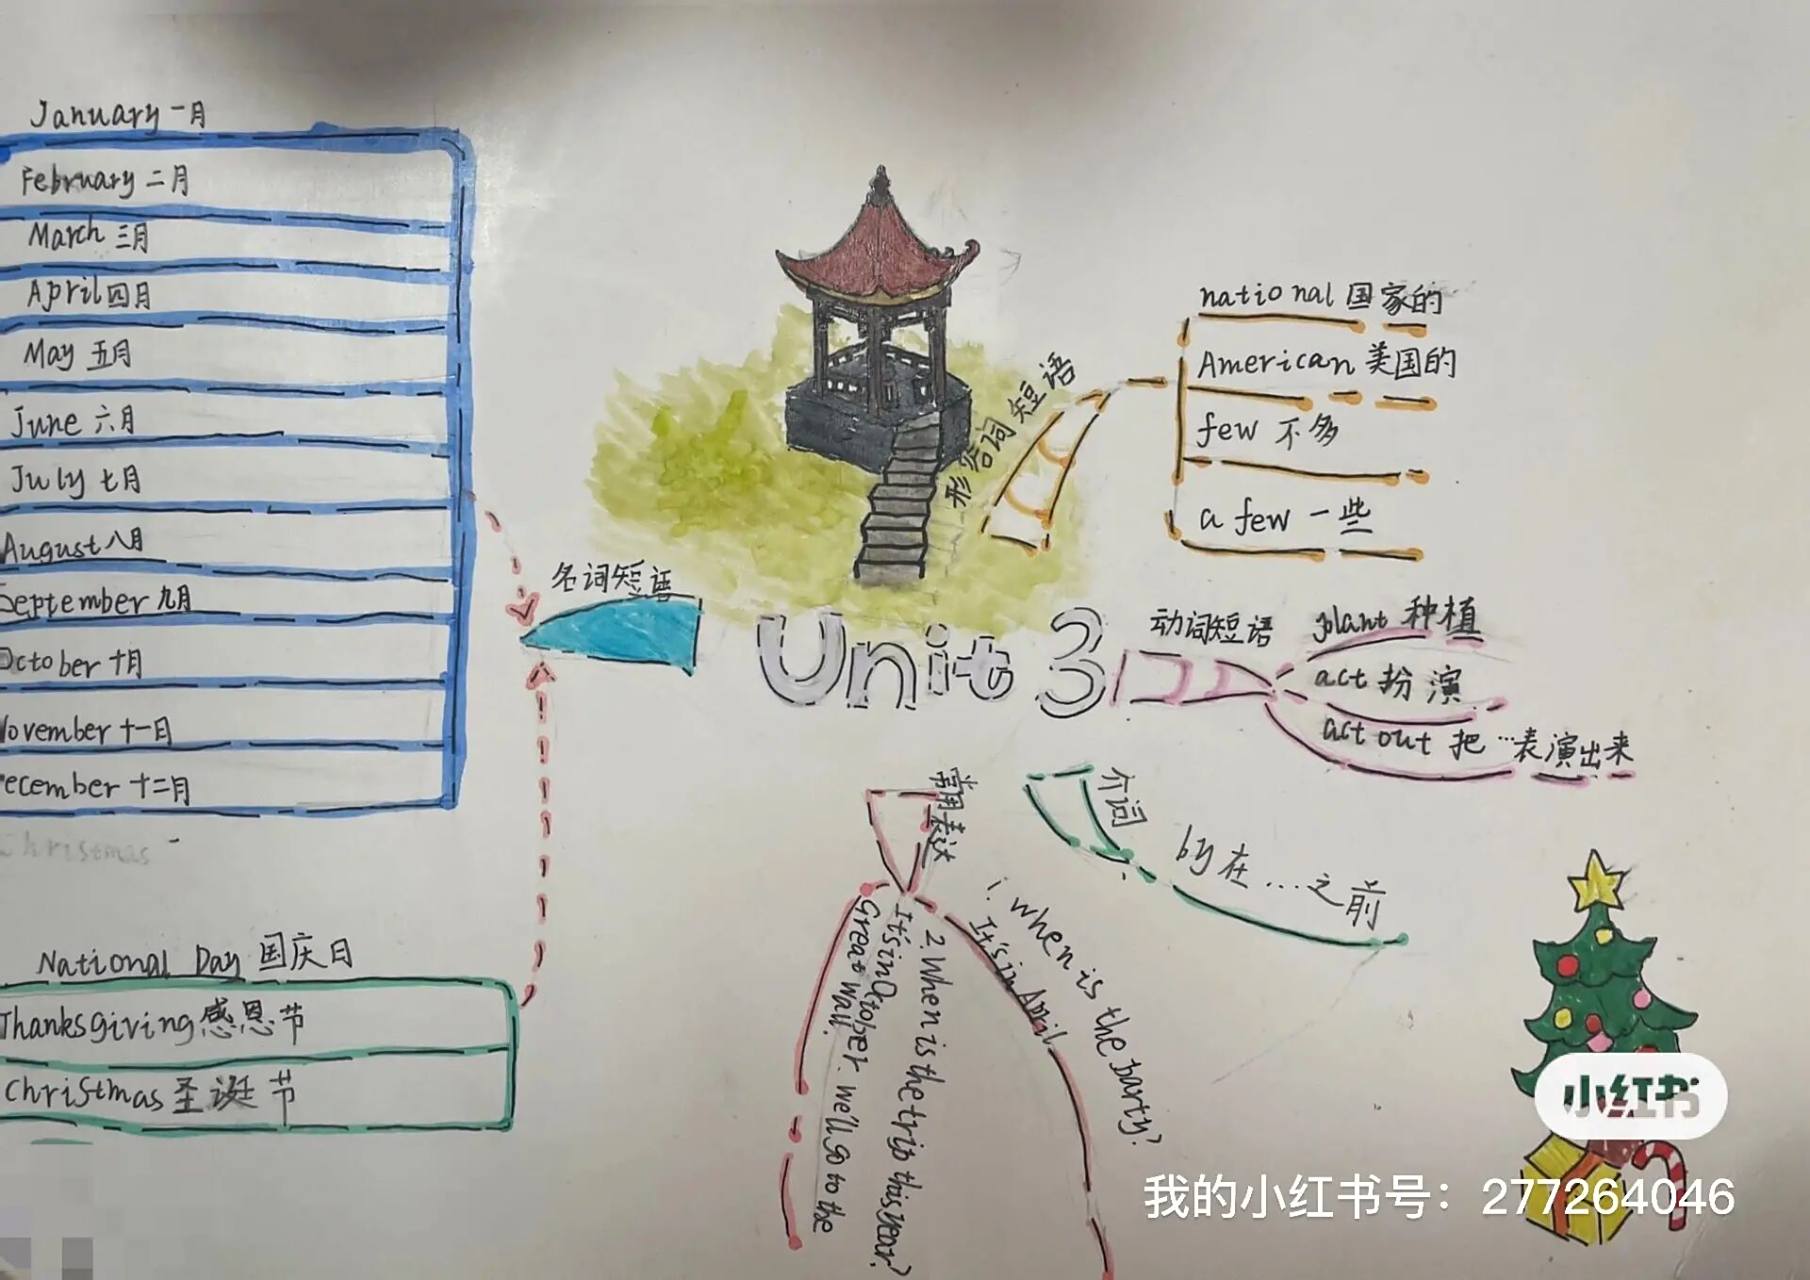 January 一月
February 二月
March 三月
April 四月
May 五月
June 六月
July 七月
August 八月
September 九月
October 十月
November 十一日
ecember 十二月
Christmas
National Day 国庆日
Thanksgiving 感恩节
Christmas 圣诞节
名词短语
Unit 3
形容词短语
national 国家的
American 美国的
few 不多
a few 一些
动词短语
plant 种植
act 扮演
act out 把…表演出来
介词
by 在…之前
常用表达
1. when is the party?
It's in April
2. When is the trip this year?
It's in October. we'll go to the
Great Wall.
小红书
我的小红书号：277264046